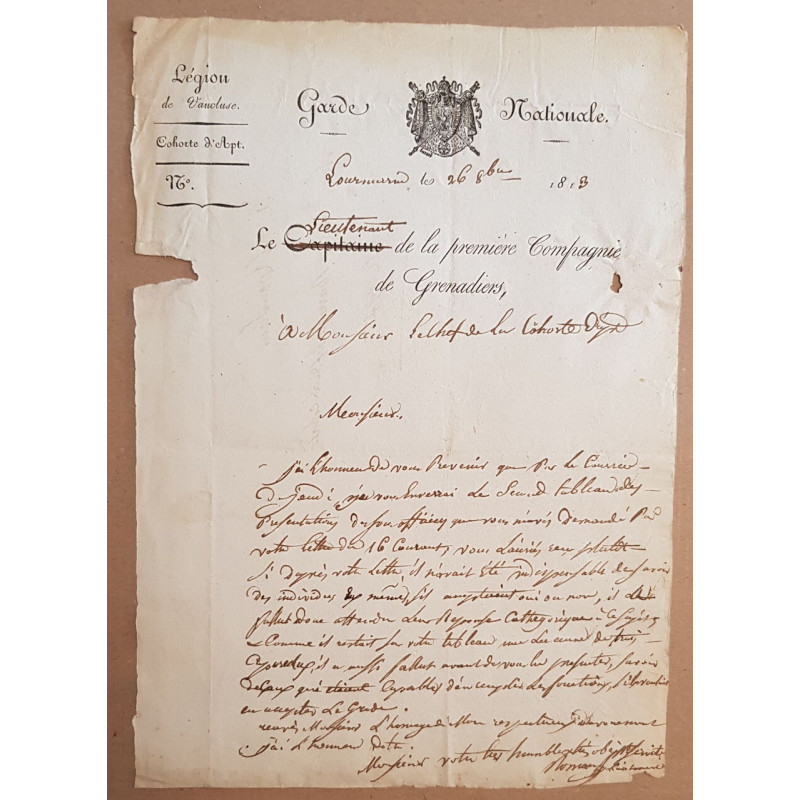 Légion
de Vaucluse.
Cohorte d'Apt.
N°.
Garde Nationale.
Lourmarin le 26 8bre 1813
Lieutenant
Le Capitaine de la première Compagnie
de Grenadiers,
à Monsieur Le Chef de La Cohorte D'apt
Monsieur.
j'ai L'honneur De vous Prevenir que Par Le Courrier
De jeudi je vous Enverrai Le Second tableau des
Presentations des sous officiers que vous m'avés Demandé Par
votre Lettre du 16 Courant, vous L'auriés eu plutôt
Si D'après votre Lettre, il n'avait Eté indispensable de savoir
des individus même, s'ils acceptaient oui ou non, il
fallut donc attendre Leur Reponse Cathegorique à ce sujet,
Comme il restait sur votre tableau une Lacune de trois
Caporaux, il a aussi fallut avant de vous les presenter, savoir
De Ceux qui étaient Capables d'en remplir Les fonctions, s'ils voulaient
en accepter Le Grade.
recevés Monsieur L'homage de Mon respectueux Devouement
j'ai L'honneur D'etre
Monsieur votre très humble et très obeist servit
Lieutenant